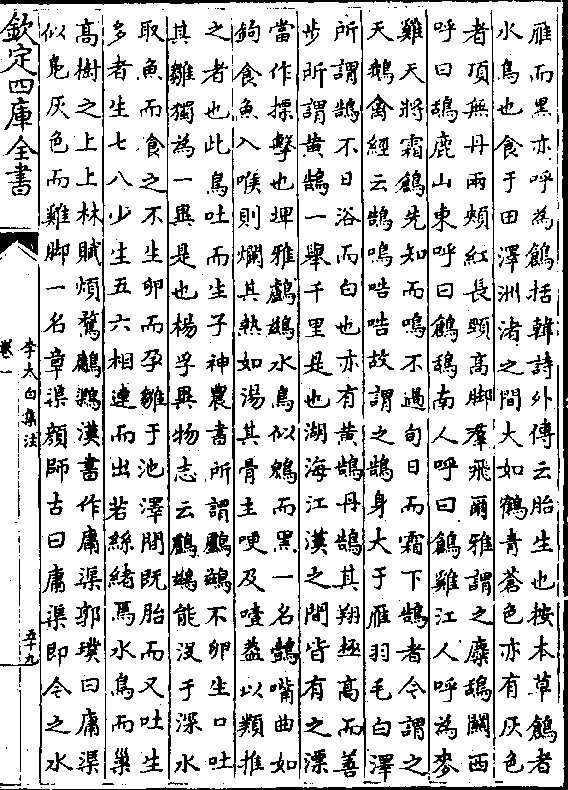 雁而黑亦呼為鶬括韓詩外傳云胎生也按本草鶬者
水鳥也食于田澤洲渚之間大如鶴青蒼色亦有灰色
者頂無丹兩頰紅長頸高脚羣飛爾雅謂之麋鴰關西
呼曰鴰鹿山東呼曰鶬鴰南人呼曰鶬雞江人呼為麥
雞天將霜鶬先知而鳴不過旬日而霜下鵠者今謂之
天鵝禽經云鵠鳴哠哠故謂之鵠身大于雁羽毛白澤
所謂鵠不日浴而白也亦有黄鵠丹鵠其翔極高而善
步所謂黄鵠一舉千里是也湖海江漢之間皆有之漂
當作摽擊也埤雅鸕鷀水鳥似鶂而黑一名鷧嘴曲如
鉤食魚入喉則爛其熱如湯其骨主哽及噎葢以類推
之者也此鳥吐而生子神農書所謂鸕鷀不卵生口吐
其雛獨為一異是也楊孚異物志云鸕鷀能没于深水
取魚而食之不生卵而孕雛于池澤間既胎而又吐生
多者生七八少生五六相連而出若絲緒焉水鳥而巢
高樹之上上林賦煩鶩鷛䴌漢書作庸渠郭璞曰庸渠
似鳬灰色而雞脚一名章渠顔師古曰庸渠即今之水
欽定四庫全書
李太白集注
卷一
五十九